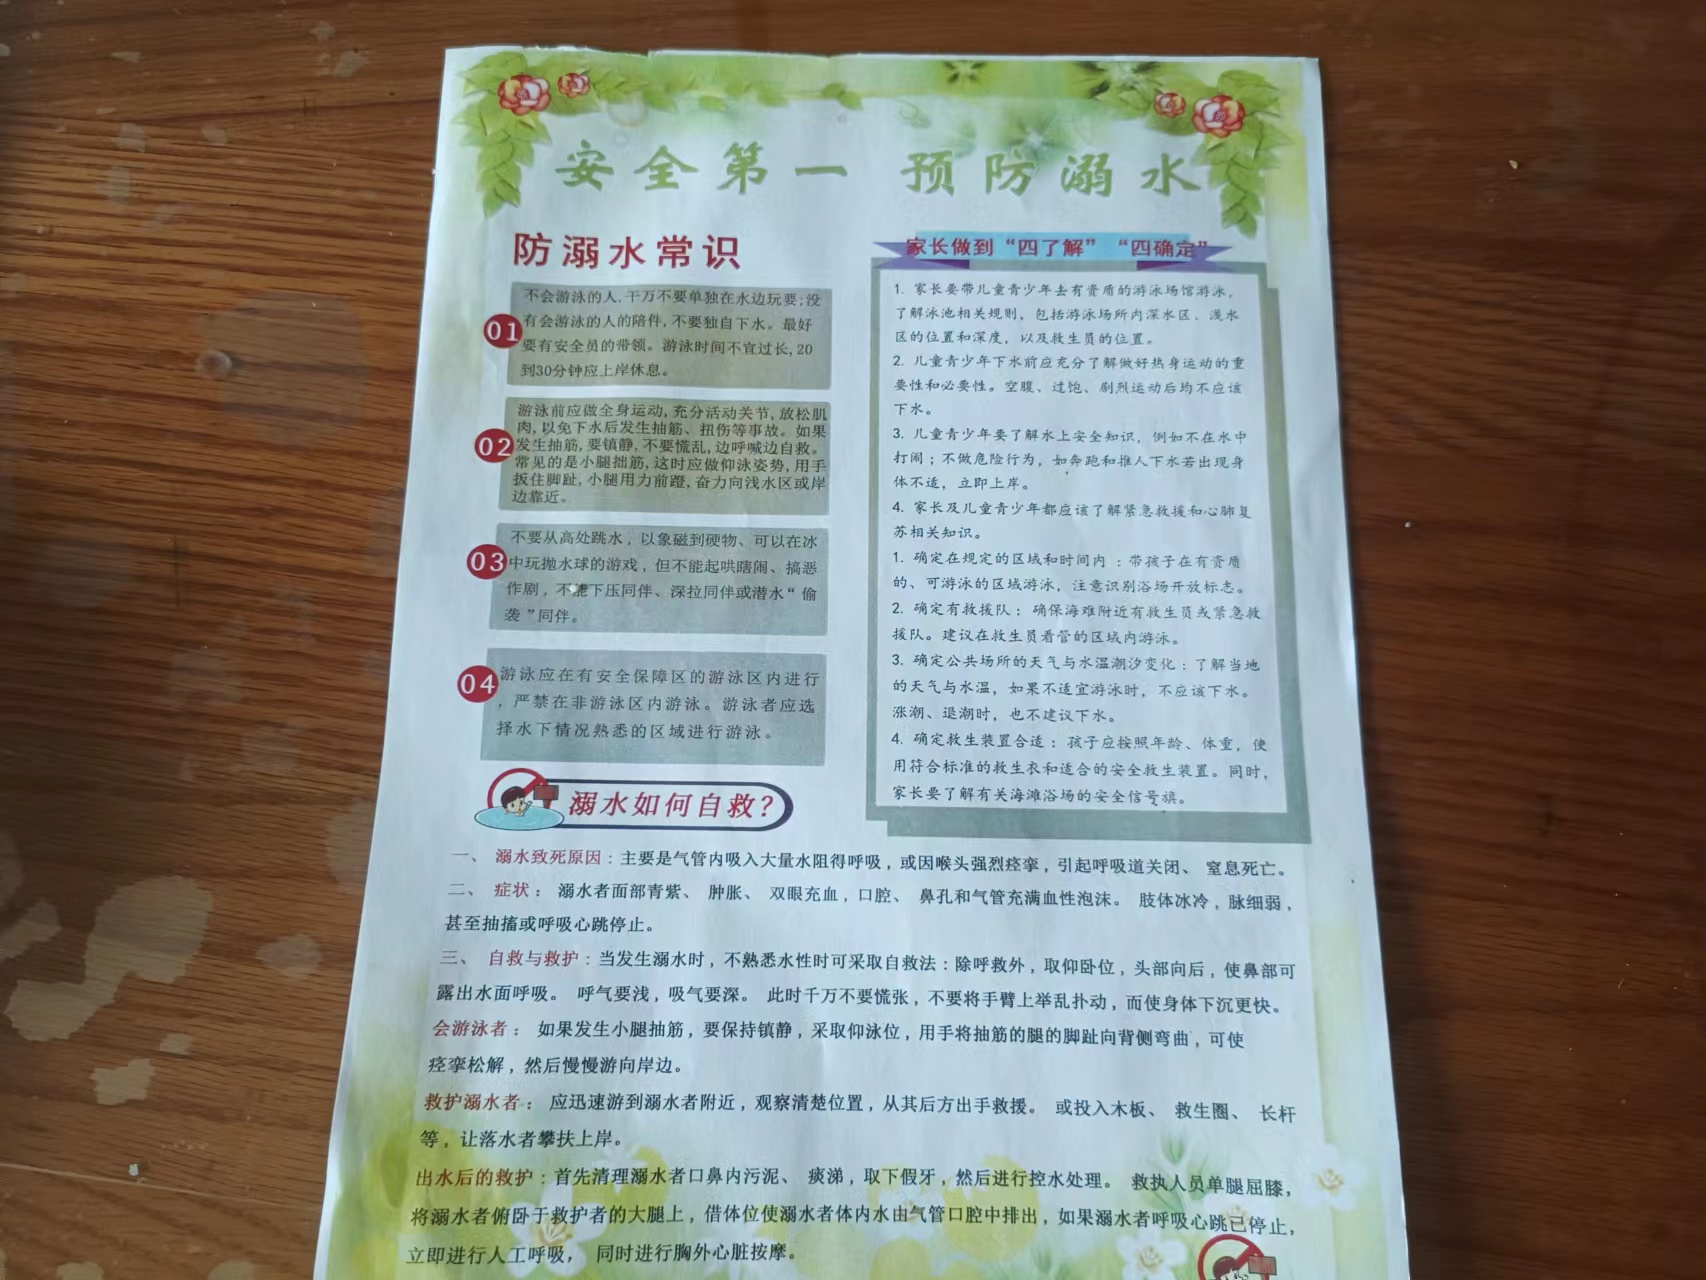 安全第一 预防溺水
防溺水常识
01
不会游泳的人,千万不要单独在水边玩耍;没
有会游泳的人的陪伴,不要独自下水。最好
要有安全员的带领。游泳时间不宜过长,20
到30分钟应上岸休息。
02
游泳前应做全身运动,充分活动关节,放松肌
肉,以免下水后发生抽筋、扭伤等事故。如果
发生抽筋,要镇静,不要慌乱,边呼喊边自救。
常见的是小腿拙筋,这时应做仰泳姿势,用手
扳住脚趾,小腿用力前蹬,奋力向浅水区或岸
边靠近。
03
不要从高处跳水，以象磁到硬物、可以在冰
中玩抛水球的游戏，但不能起哄瞎闹、搞恶
作剧，不能下压同伴、深拉同伴或潜水“偷
袭”同伴。
04
游泳应在有安全保障区的游泳区内进行
，严禁在非游泳区内游泳。游泳者应选
择水下情况熟悉的区域进行游泳。
家长做到“四了解”“四确定”
1. 家长要带儿童青少年去有资质的游泳场馆游泳，
了解泳池相关规则，包括游泳场所内深水区、浅水
区的位置和深度，以及救生员的位置。
2. 儿童青少年下水前应充分了解做好热身运动的重
要性和必要性。空腹、过饱、剧烈运动后均不应该
下水。
3. 儿童青少年要了解水上安全知识，例如不在水中
打闹；不做危险行为，如奔跑和推人下水若出现身
体不适，立即上岸。
4. 家长及儿童青少年都应该了解紧急救援和心肺复
苏相关知识。
1. 确定在规定的区域和时间内：带孩子在有资质
的、可游泳的区域游泳，注意识别浴场开放标志。
2. 确定有救援队：确保海难附近有救生员或紧急救
援队。建议在救生员看管的区域内游泳。
3. 确定公共场所的天气与水温潮汐变化：了解当地
的天气与水温，如果不适宜游泳时，不应该下水。
涨潮、退潮时，也不建议下水。
4. 确定救生装置合适：孩子应按照年龄、体重，使
用符合标准的救生衣和适合的安全救生装置。同时，
家长要了解有关海滩浴场的安全信号旗。
溺水如何自救?
一、 溺水致死原因：主要是气管内吸入大量水阻得呼吸，或因喉头强烈痉挛，引起呼吸道关闭、 窒息死亡。
二、 症状： 溺水者面部青紫、 肿胀、 双眼充血，口腔、 鼻孔和气管充满血性泡沫。 肢体冰冷，脉细弱，
甚至抽搐或呼吸心跳停止。
三、 自救与救护：当发生溺水时，不熟悉水性时可采取自救法：除呼救外，取仰卧位，头部向后，使鼻部可
露出水面呼吸。 呼气要浅，吸气要深。 此时千万不要慌张，不要将手臂上举乱扑动，而使身体下沉更快。
会游泳者： 如果发生小腿抽筋，要保持镇静，采取仰泳位，用手将抽筋的腿的脚趾向背侧弯曲，可使
痉挛松解，然后慢慢游向岸边。
救护溺水者： 应迅速游到溺水者附近，观察清楚位置，从其后方出手救援。 或投入木板、 救生圈、 长杆
等，让落水者攀扶上岸。
出水后的救护：首先清理溺水者口鼻内污泥、 痰涕，取下假牙，然后进行控水处理。 救执人员单腿屈膝，
将溺水者俯卧于救护者的大腿上，借体位使溺水者体内水由气管口腔中排出，如果溺水者呼吸心跳已停止，
立即进行人工呼吸， 同时进行胸外心脏按摩。